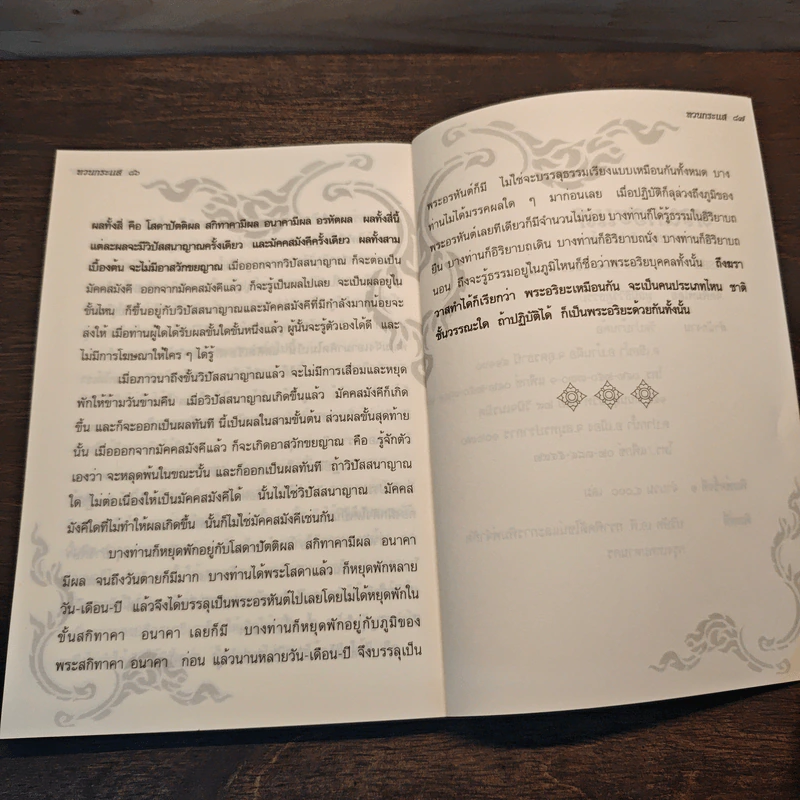 ทวนกระแส ๘๖
ผลทั้งสี่ คือ โสดาปัตติผล สกิทาคามีผล อนาคามีผล อรหัตผล ผลทั้งสี่นี้
แต่ละผลจะมีวิปัสสนาญาณครั้งเดียว และมัคคสมังคีครั้งเดียว ผลทั้งสาม
เบื้องต้น จะไม่มีอาสวักขยญาณ เมื่อออกจากวิปัสสนาญาณ ก็จะต่อเป็น
มัคคสมังคี ออกจากมัคคสมังคีแล้ว ก็จะรู้เป็นผลไปเลย จะเป็นผลอยู่ใน
ขั้นไหน ก็ขึ้นอยู่กับวิปัสสนาญาณและมัคคสมังคีที่มีกำลังมากน้อยจะ
ส่งให้ เมื่อท่านผู้ใดได้รับผลขั้นใดขั้นหนึ่งแล้ว ผู้นั้นจะรู้ตัวเองได้ดี และ
ไม่มีการโฆษณาให้ใคร ๆ ได้รู้
เมื่อภาวนาถึงขั้นวิปัสสนาญาณแล้ว จะไม่มีการเสื่อมและหยุด
พักให้ข้ามวันข้ามคืน เมื่อวิปัสสนาญาณเกิดขึ้นแล้ว มัคคสมังคีก็เกิด
ขึ้น และก็จะออกเป็นผลทันที นี้เป็นผลในสามขั้นต้น ส่วนผลขั้นสุดท้าย
นั้น เมื่อออกจากมัคคสมังคีแล้ว ก็จะเกิดอาสวักขยญาณ คือ รู้จักตัว
เองว่า จะหลุดพ้นในขณะนั้น และก็ออกเป็นผลทันที ถ้าวิปัสสนาญาณ
ใด ไม่ต่อเนื่องให้เป็นมัคคสมังคีได้ นั้นไม่ใช่วิปัสสนาญาณ มัคคส
มังคีใดที่ไม่ทำให้ผลเกิดขึ้น นั้นก็ไม่ใช่มัคคสมังคีเช่นกัน
บางท่านก็หยุดพักอยู่กับโสดาปัตติผล สกิทาคามีผล อนาคา
มีผล จนถึงวันตายก็มีมาก บางท่านได้พระโสดาแล้ว ก็หยุดพักหลาย
วัน-เดือน-ปี แล้วจึงได้บรรลุเป็นพระอรหันต์ไปเลยโดยไม่ได้หยุดพักใน
ขั้นสกิทาคา อนาคา เลยก็มี บางท่านก็หยุดพักอยู่กับภูมิของ
พระสกิทาคา อนาคา ก่อน แล้วนานหลายวัน-เดือน-ปี จึงบรรลุเป็น
ทวนกระแส ๘๗
พระอรหันต์ก็มี ไม่ใช่จะบรรลุธรรมเรียงแบบเหมือนกันทั้งหมด บาง
ท่านไม่ได้มรรคผลใด ๆ มาก่อนเลย เมื่อปฏิบัติก็ลุล่วงถึงภูมิของ
พระอรหันต์เลยทีเดียวก็มีจำนวนไม่น้อย บางท่านก็ได้รู้ธรรมในอิริยาบถ
ยืน บางท่านก็อิริยาบถเดิน บางท่านก็อิริยาบถนั่ง บางท่านก็อิริยาบถ
นอน ถึงจะรู้ธรรมอยู่ในภูมิไหนก็ชื่อว่าพระอริยบุคคลทั้งนั้น ถึงฆรา
วาสทำได้ก็เรียกว่า พระอริยะเหมือนกัน จะเป็นคนประเภทไหน ชาติ
ชั้นวรรณะใด ถ้าปฏิบัติได้ ก็เป็นพระอริยะด้วยกันทั้งนั้น